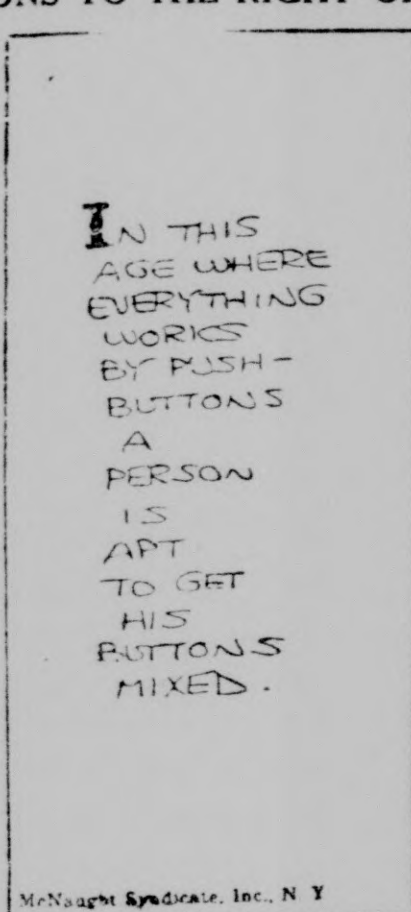 ONS TO THE RIGHT OF
IN THIS
AGE WHERE
EVERYTHING
WORKS
BY PUSH-
BUTTONS
A
PERSON
IS
APT
TO GET
HIS
BUTTONS
MIXED.
McNaught Syndicate, Inc., N Y